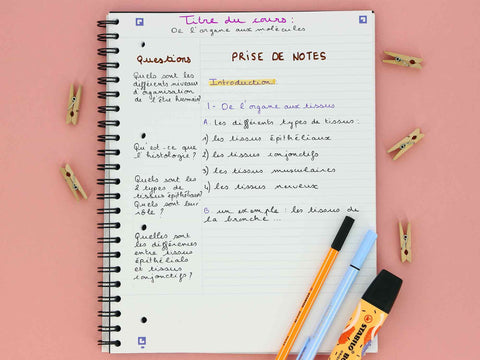 Titre du cours :
De l'organe aux molécules
Questions
PRISE DE NOTES
Quels sont les
différents niveaux
d'organisation
de l'être humain?
Introduction
1- De l'organe aux tissus
A. Les différents types de tissus :
Qu'est-ce que
l'histologie ?
1) les tissus épithéliaux
2) les tissus conjonctifs
3) les tissus musculaires
4) les tissus nerveux
Quels sont les
2 types de
tissus épithéliaux?
Quels sont leur
rôle ?
B. un exemple : les tissus de
la bronche ...
Quelles sont
les différences
entre tissus
épithélials
et tissus
conjonctifs ?
STABILO